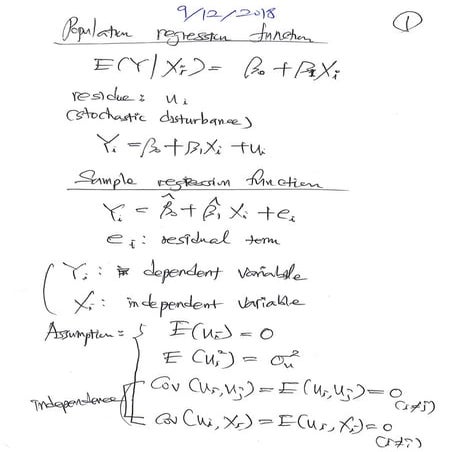 9/12/2018
①
Population regression function
E(Y/Xi) = β0 + β1Xi
residue: ui
(stochastic disturbance)
Yi = β0 + β1Xi + ui
Sample regression function
Yi = β̂0 + β̂1 Xi + ei
ei: residual term
Yi: dependent variable
Xi: independent variable
Assumption = { E(ui) = 0
E(ui²) = σu²
independence Cov(ui,uj) = E(ui,uj) = 0 (i≠j)
Cov(ui, Xi) = E(ui, Xi) = 0 (i≠j)